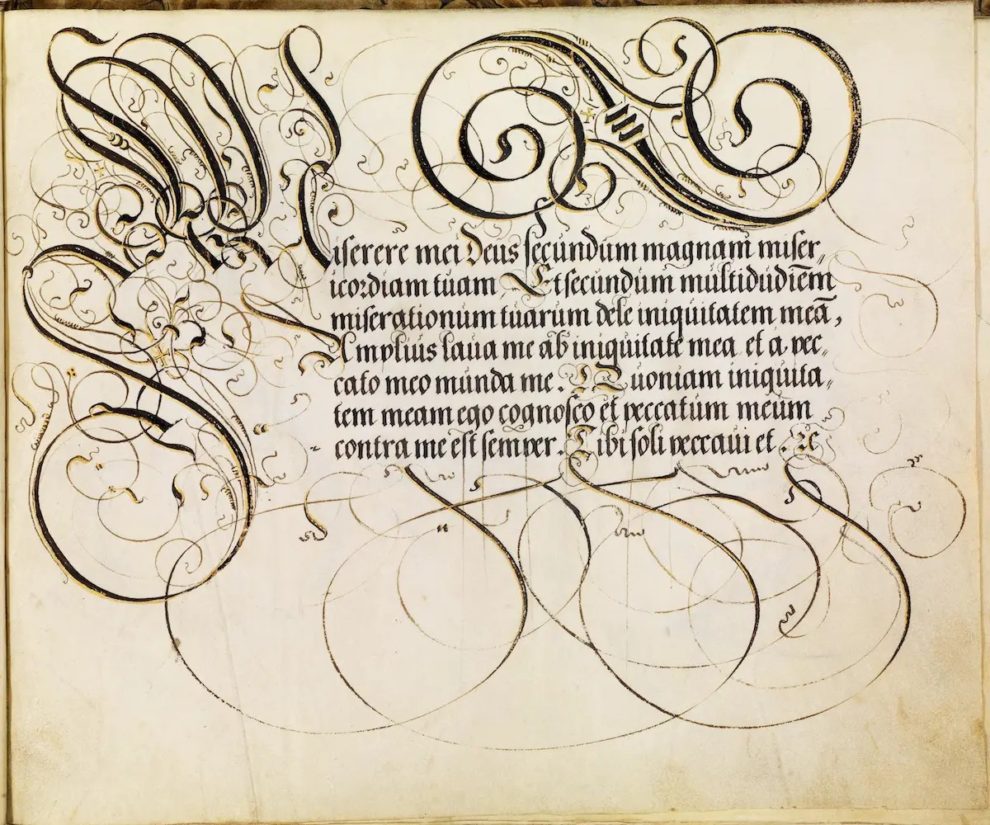 Miserere mei Deus secundum magnam miser,,
icordiam tuam Et secundum multidudiēm
miserationum tuarum dele iniquitatem meā,
Amplius laua me ab iniquitate mea et a pec,,
cato meo munda me. Quoniam iniquita,,
tem meam ego cognosco et peccatum meum
contra me est semper. Tibi soli peccaui et